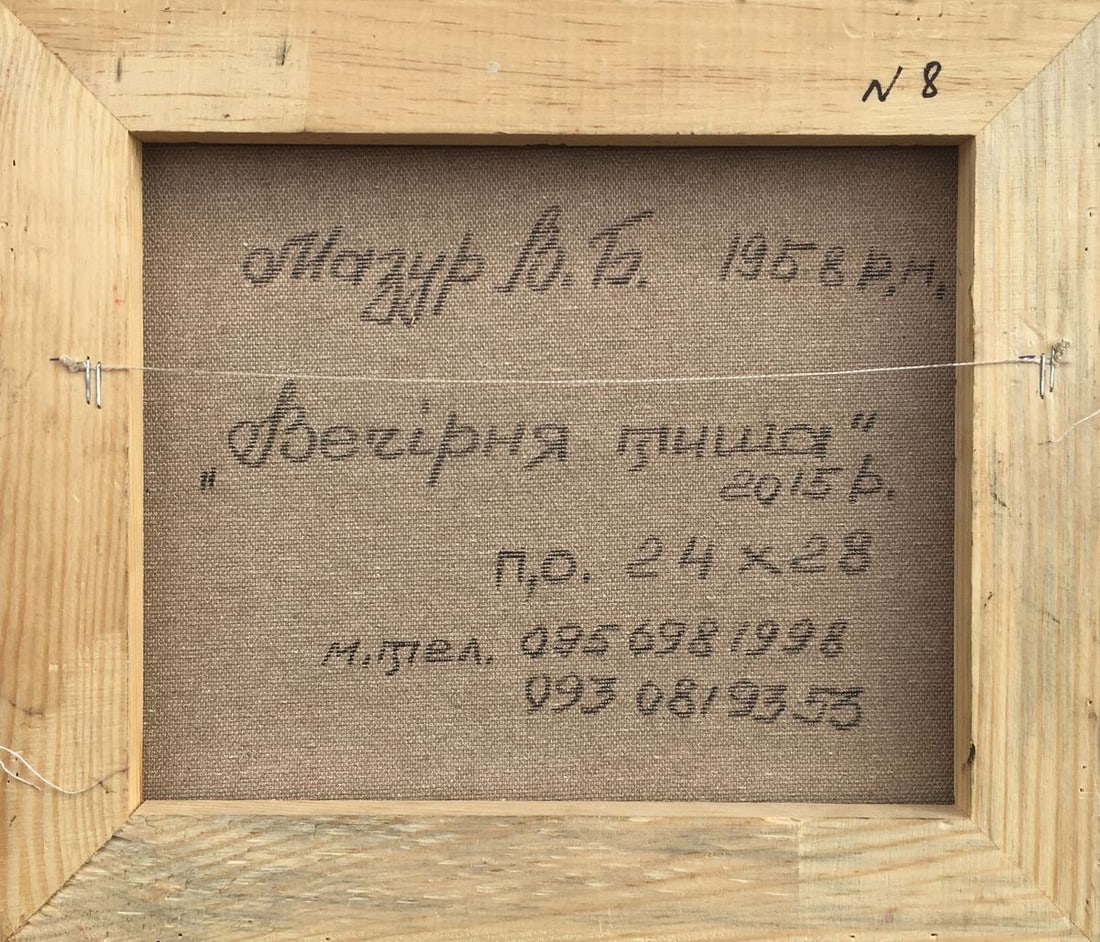 N 8
Мазур В.Б. 1958 р.н.
„Вечірня тиша"
2015 р.
п,о. 24 х 28
м.тел. 095 698 1998
093 081 93 53